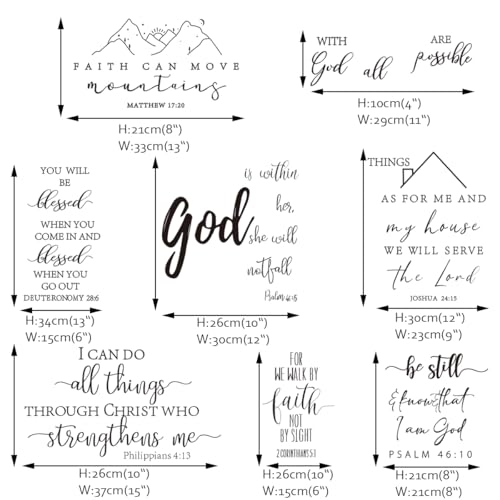 FAITH CAN MOVE
mountains
MATTHEW 17:20
H:21cm(8“)
W:33cm(13“)
WITH ARE
God all possible
H:10cm(4“)
W:29cm(11“)
YOU WILL
BE
blessed
WHEN YOU
COME IN AND
blessed
WHEN YOU
GO OUT
DEUTERONOMY 28:6
H:34cm(13“)
W:15cm(6“)
God
is within
her,
she will
notfall
Psalm 46:5
H:26cm(10“)
W:30cm(12“)
THINGS
AS FOR ME AND
my house
WE WILL SERVE
the Lord
JOSHUA 24:15
H:30cm(12“)
W:23cm(9“)
I CAN DO
all things
THROUGH CHRIST WHO
strengthens me
Philippians 4:13
H:26cm(10“)
W:37cm(15“)
FOR
WE WALK BY
faith
NOT
BY SIGHT
2 CORINTHIANS 5:7
H:26cm(10“)
W:15cm(6“)
be still
& know that
I am God
PSALM 46:10
H:21cm(8“)
W:21cm(8“)